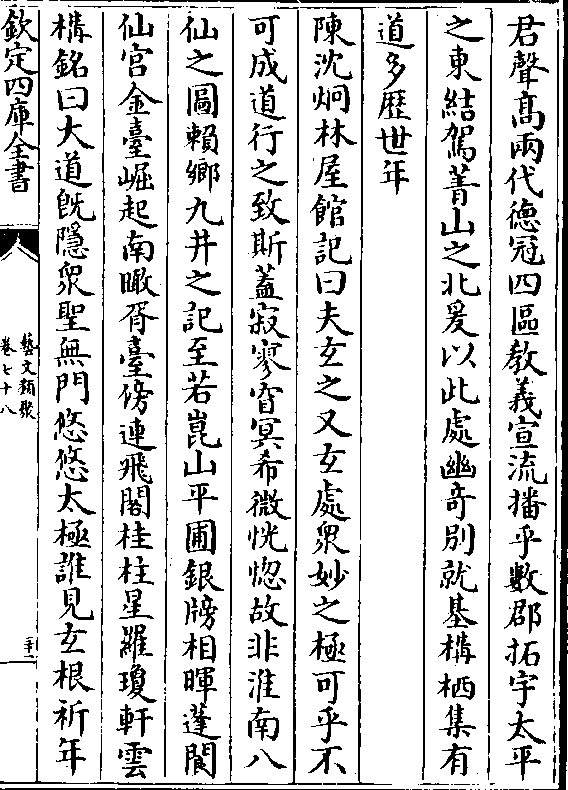 君聲髙兩代德冠四區教義宣流播乎數郡拓宇太平
之東結駕菁山之北爰以此處幽竒別就基構栖集有
道多歴世年
陳沈炯林屋館記曰夫玄之又玄處衆妙之極可乎不
可成道行之致斯蓋寂寥窅冥希微恍惚故非淮南八
仙之圖賴鄉九井之記至若崑山平圃銀牓相暉蓬閬
仙宫金臺崛起南瞰胥臺傍連飛閣桂柱星羅瓊軒雲
構銘曰大道旣隱衆聖無門悠悠太極誰見玄根祈年
欽定四庫全書
藝文類聚
卷七十八